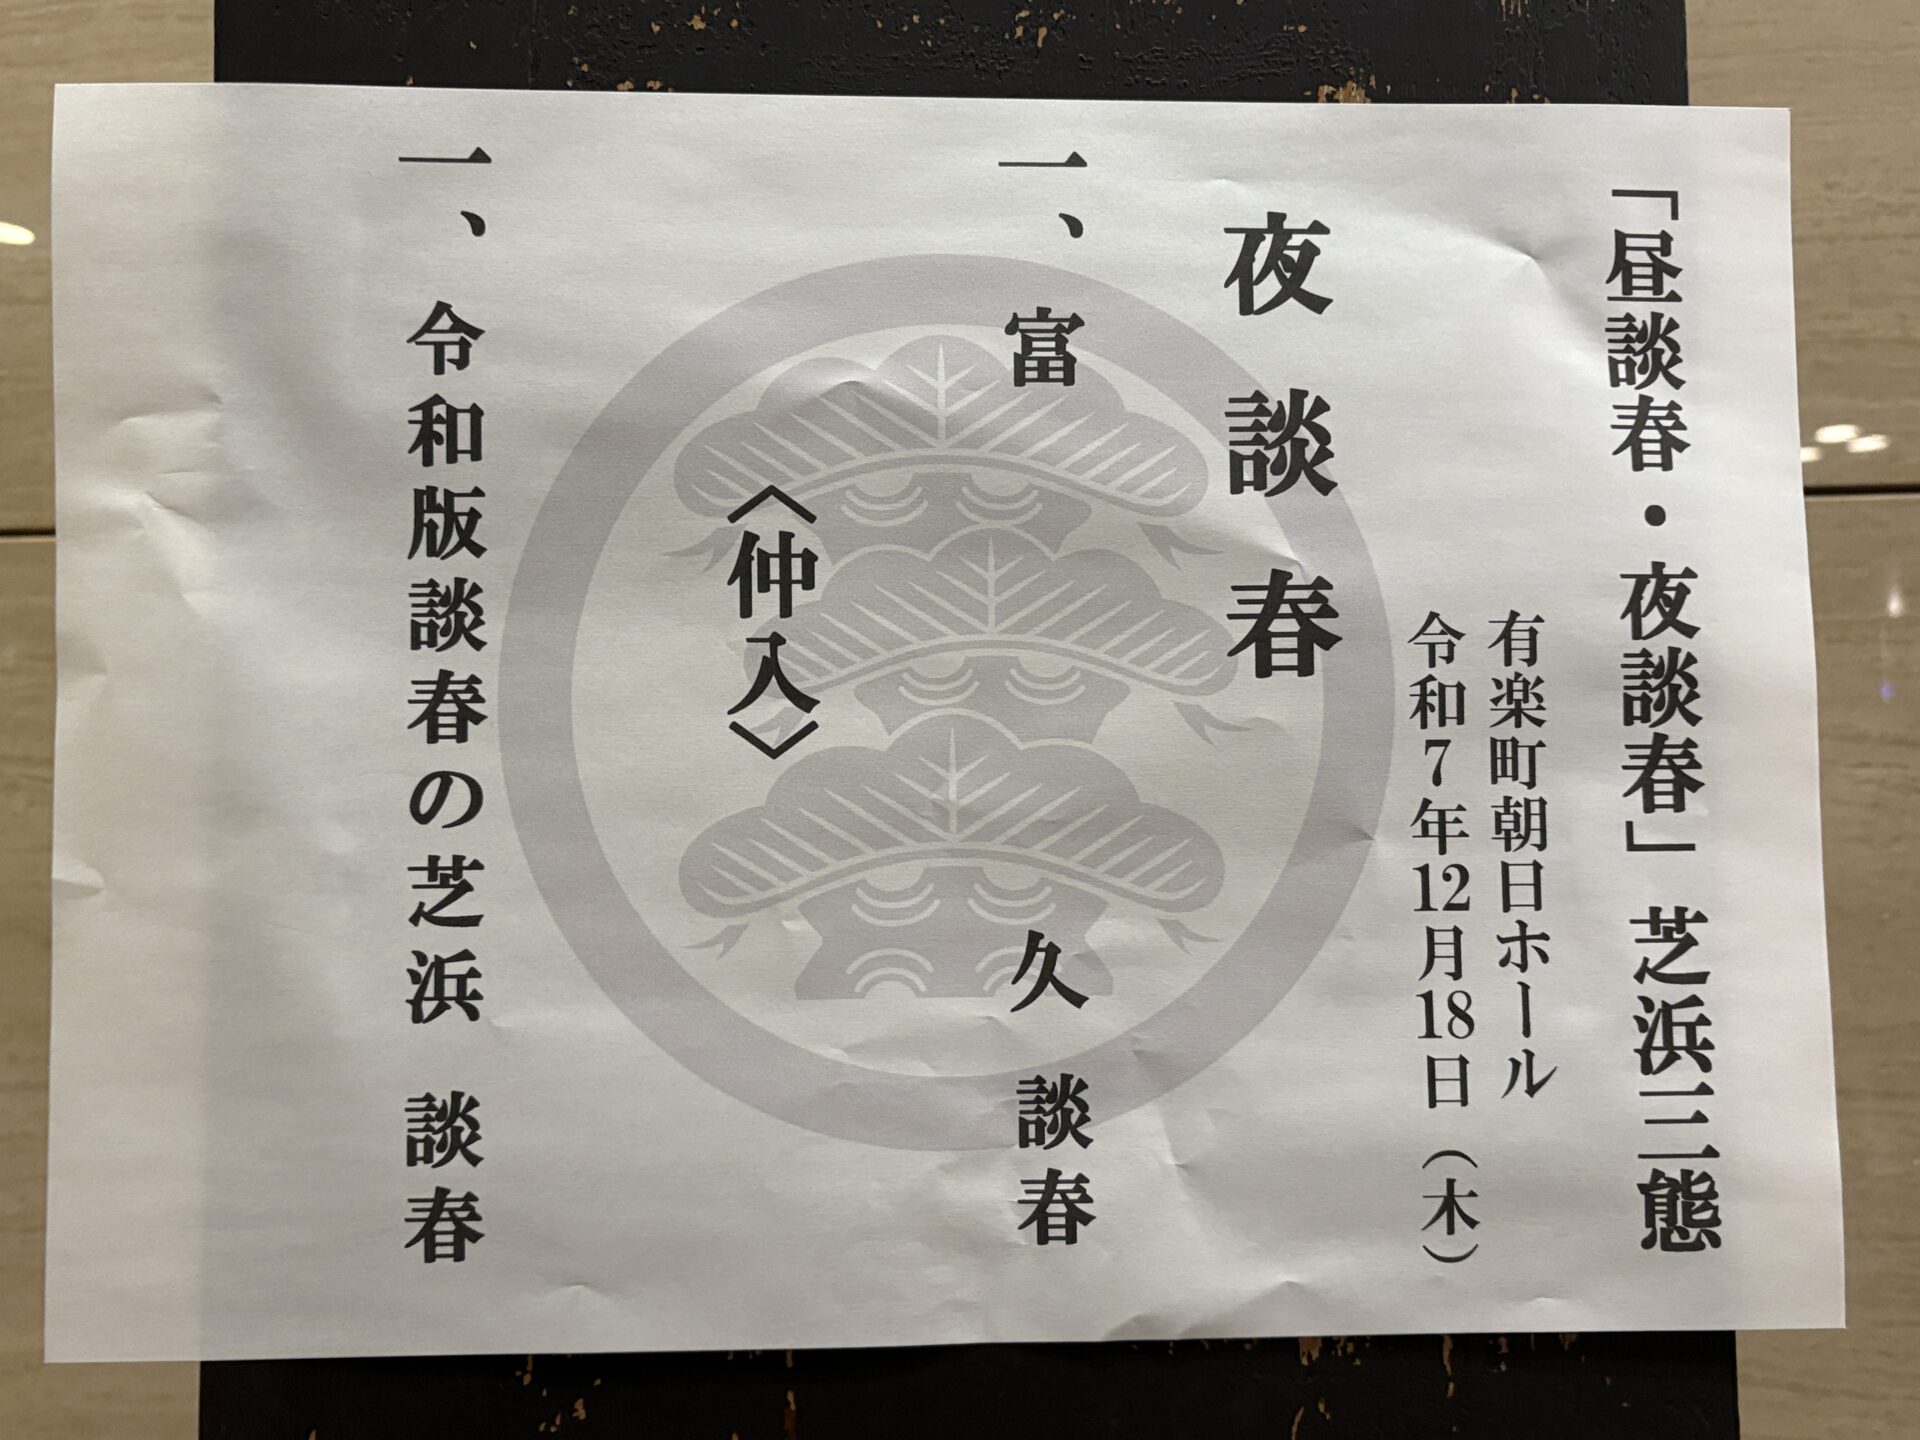 「昼談春・夜談春」芝浜三態
有楽町朝日ホール
令和7年12月18日（木）
夜談春
一、富久 談春
〈仲入〉
一、令和版談春の芝浜 談春